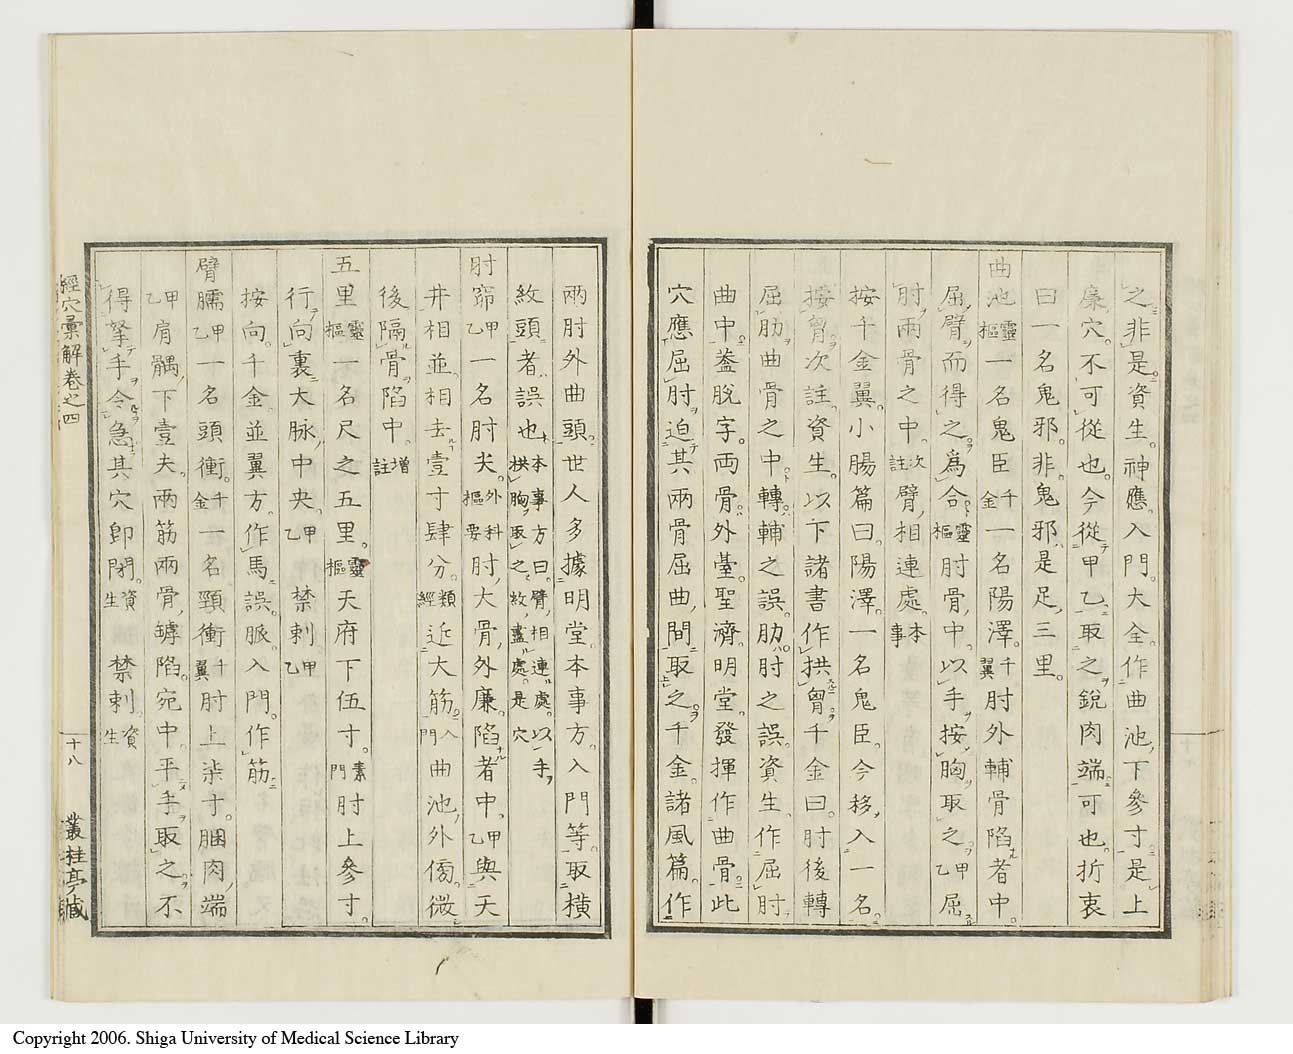 之非是資生。神應。入門。大全。作曲池下參寸是上
廉穴。不可從也。今從甲乙。取之銳肉端。可也。折衷
曰一名鬼邪。非。鬼邪是足三里。
曲池靈樞一名鬼臣千金一名陽澤。千翼肘外輔骨陷者中。
屈臂而得之。爲合。靈樞肘骨中。以手按胸取之。甲乙屈
肘兩骨之中。次註臂相連處。本事
按千金翼。小腸篇曰。陽澤。一名鬼臣。今移入一名。
按胷。次註。資生。以下諸書作拱胷。千金曰。肘後轉
屈肋曲骨之中。轉。輔之誤。肋。肘之誤。資生。作屈肘
曲中。蓋脫字。両骨。外臺。聖濟。明堂。發揮作曲骨。此
穴應屈肘迫其兩骨屈曲間取之。千金。諸風篇。作
兩肘外曲頭。世人多據明堂。本事方。入門等。取橫
紋頭者。誤也。本事方曰。臂相連處。以手拱胸取之。紋盡處。是穴
肘窌甲乙一名肘尖。外科樞要肘大骨外廉陷者中。甲乙與天
井相並。相去壹寸肆分。類經近大筋。入門曲池外傍。微
後隔骨陷中。增註
五里靈樞一名尺之五里。靈樞天府下伍寸。素問肘上參寸。
行向裏大脉中央。甲乙禁刺甲乙
按向。千金並翼方。作馬。誤。脈。入門。作筋。
臂臑甲乙一名頭衝。千金一名頸衝千翼肘上柒寸。䐃肉端
甲乙肩髃下壹夫。兩筋兩骨罅陷宛宛中。平手取之。不
得拏手令急。其穴卽閉。資生禁刺。資生
經穴彙解卷之四
十八
叢桂亭藏
Copyright 2006. Shiga University of Medical Science Library